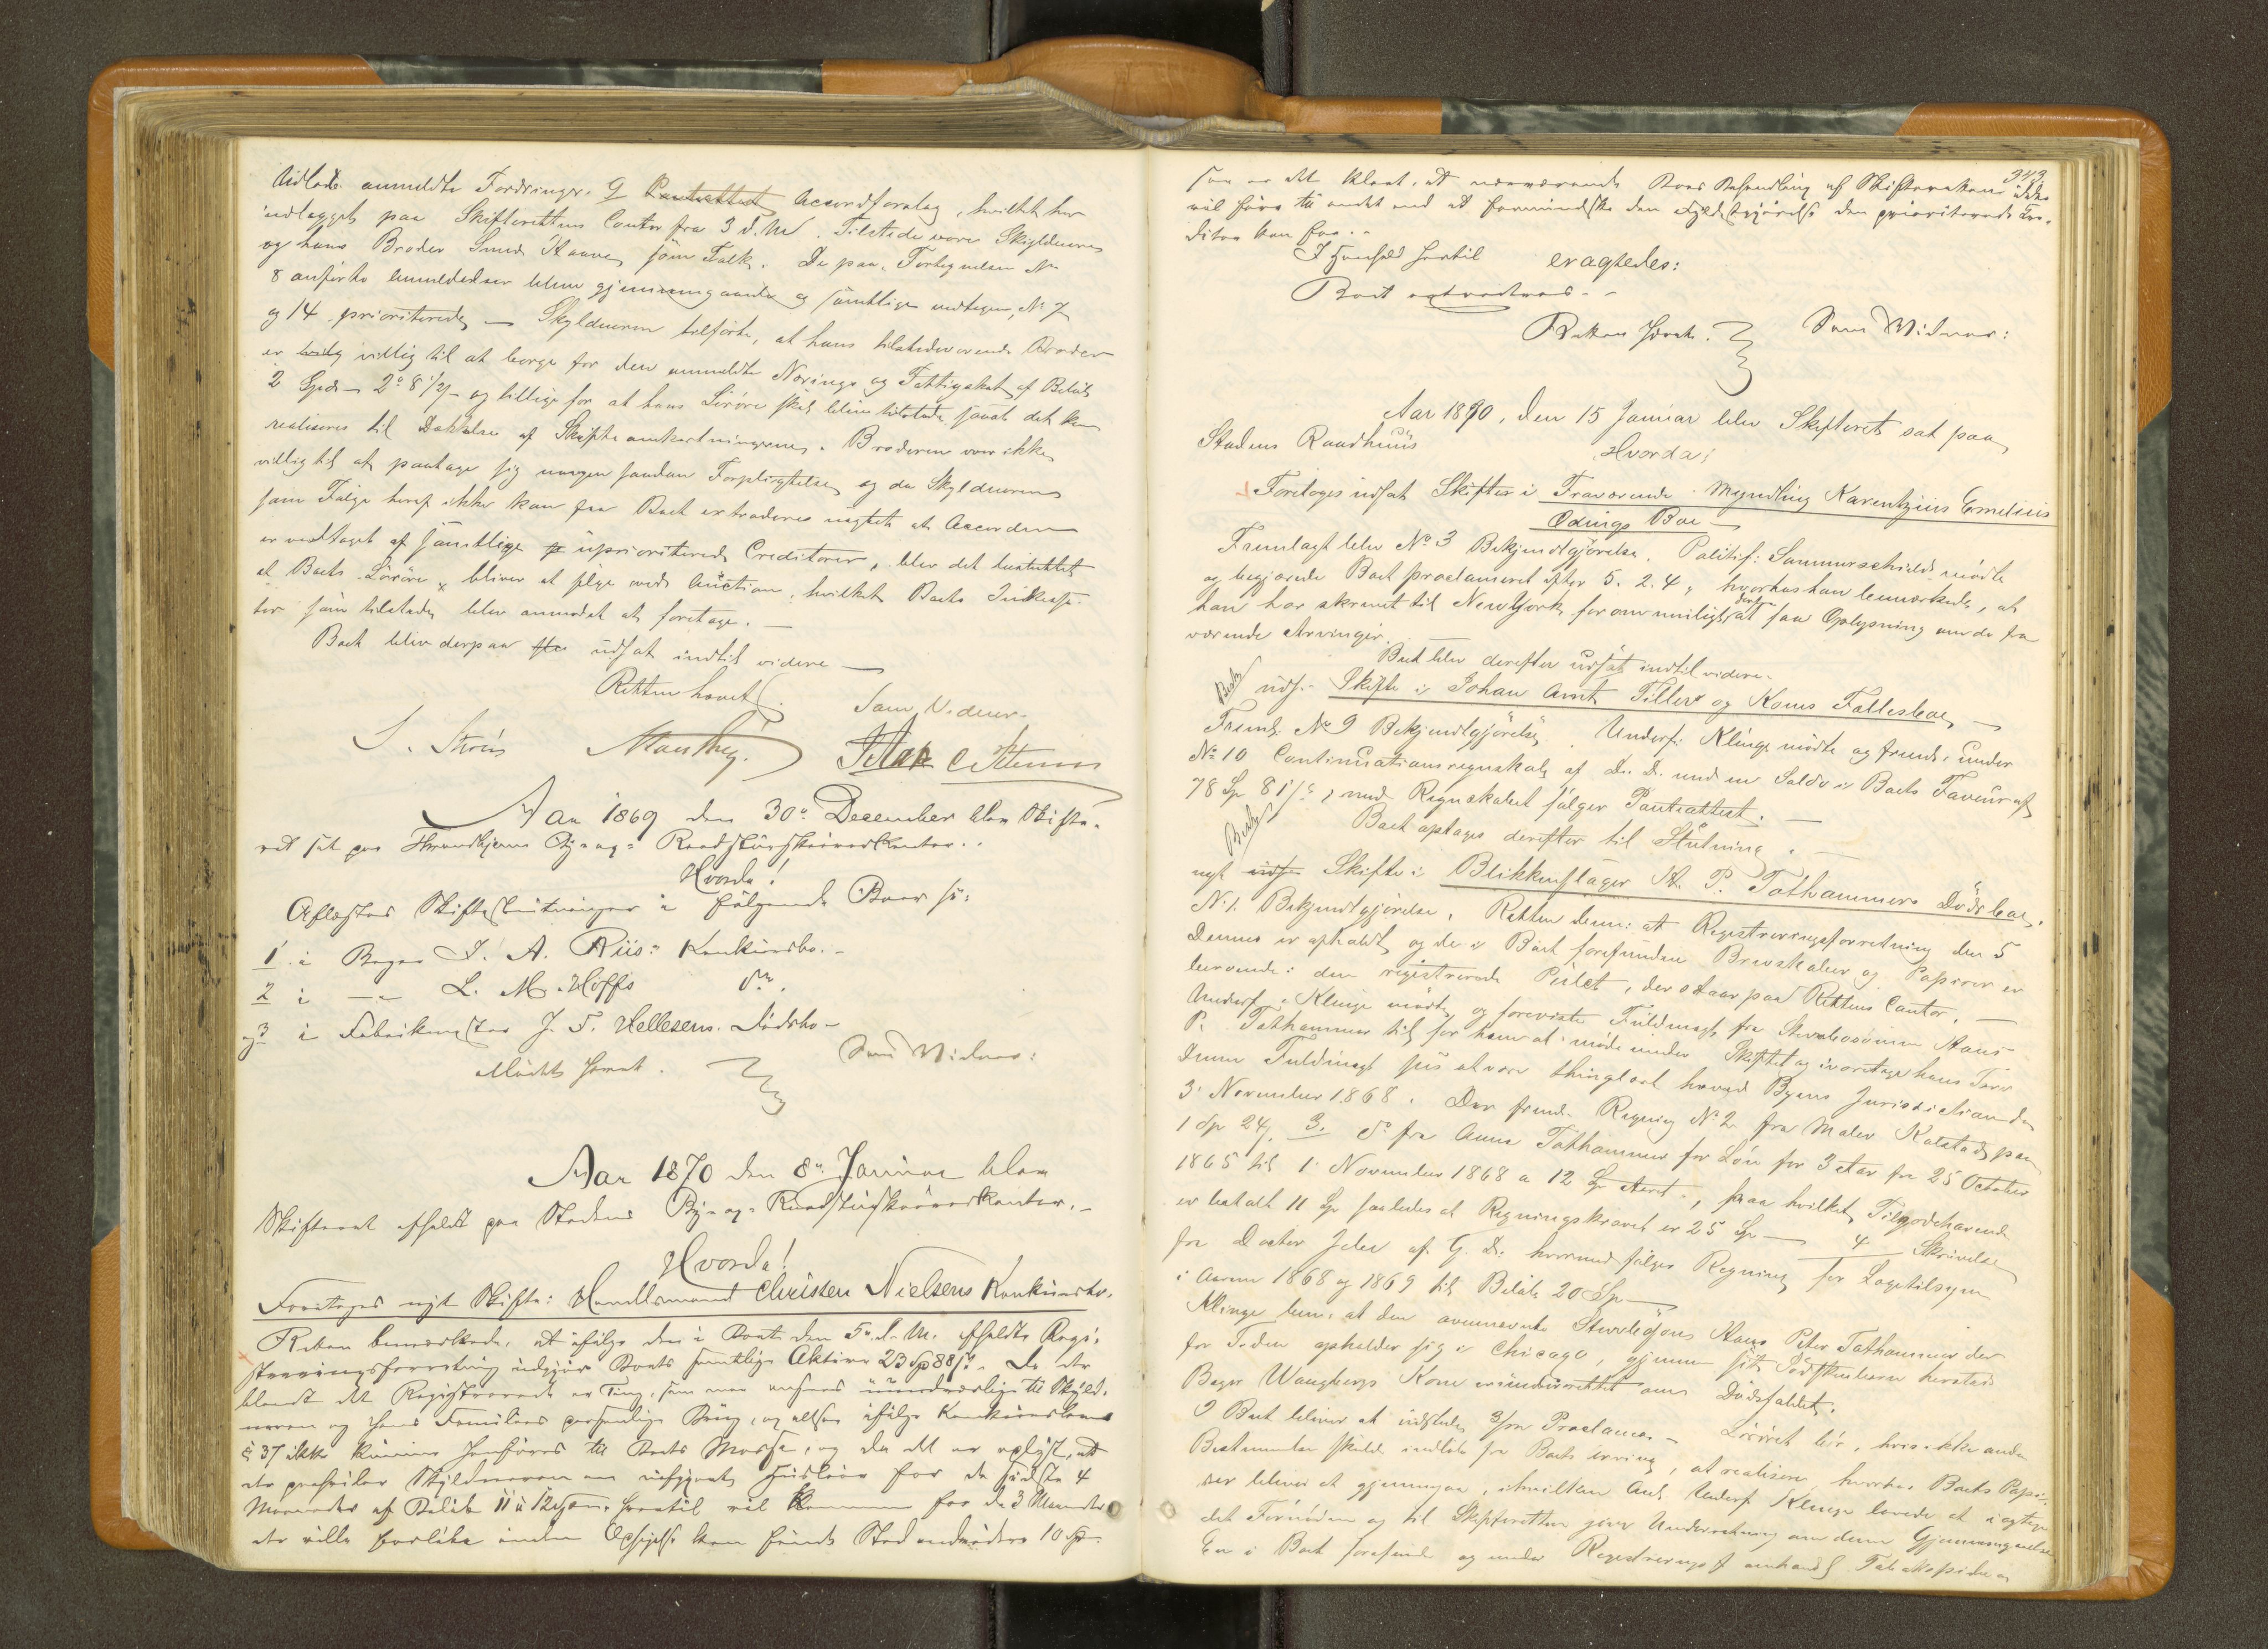 anmeldte Fordringer. 9 Accordforslag, hvilket har
indlagget paa Skifterettens Contor fra 3 d. M. Tilstede vare Skyldneren
og hans Broder Smed som Falk. De paa Fortegnelsen No
8 anførte Anmeldelser bleve gjennemgaaede og samtlige undtagen No 7
og 14 prioriterede — Skyldneren tilførte, at hans tilstedeværende Broder
er villig til at borge for den anmeldte Nærings og Fattigskat af Beløb
2 Spd og tillige for at hans Løsøre skal blive tilstede saa at det kan
realiseres til Dækkelse af Skifteomkostningerne. Broderen var ikke
villig til at paatage sig nogen saadan Forpligtelse og da Skyldneren
som Følge heraf ikke kan faa Boet extraderet uagtet at Accorden
er vedtaget af samtlige uprioriterede Creditorer, blev det besluttet
at Boets Løsøre bliver at sælge ved Auction, hvilket Boets
som tilstede blev anmodet at foretage. —
Boet blev derpaa udsat indtil videre —
Retten hævet. Som Vidner.
Aar 1869 den 30te December blev Skifte-
ret sat paa Throndhjems By- og Raadstueskriverkontor.
Hvorda!
Aflæstes Skifteslutninger i følgende Boer
1 i Bager J. A. Riis's Konkursbo. -
2 i — L. M. Hoffs Do.
og 3 i J. T. Hellesens Dødsbo -
Mødet hævet. Som Vidner:
Aar 1870 den 8de Januar blev
Skifteret afholdt paa Stadens By- og Raadstueskriverkontor. -
Hvorda!
Foretoges nyt Skifte: Handelsmand Christen Nielsens Konkursbo.
Retten bemærkede, at ifølge den i Boet den 5te d. M. afholdte Regi-
streringsforretning udgjør Boets samtlige Aktiver 23 Sp 88 s. Da der
blandt det Registrerede er Ting, som maa ansees til Skyld-
neren og hans Families personlige Brug, og altsaa ifølge Konkursloven
§ 37 ikke kunne henføres til Boets Masse, og da det er oplyst, at
der paahviler Skyldneren en Husleie for de sidste 4
Maaneder af Beløb 11 à 12 Spd, hertil vil komme for de 3 Maaneder
der ville forløbe inden Opsigelse kan finde Sted endvidere 10 Sp.
343
saa er det klart, at nærværende Boes Behandling af Skifteretten ikke
vil føre til andet end at formindske den Fyldestgjørelse den prioriterede Cre-
ditor kan faa. -
I Henhold hertil eragtedes:
Boet extraderes. -
Retten hævet. Som Vidner:
Aar 1870, den 15 Januar blev Skifteret sat paa
Stadens Raadhuus Hvorda!
Foretoges udsat Skifte i Fraværende Myndling Narentzius Emelius
Ødings Boe —
Fremlagt blev No 3 Bekjendtgjørelse. Politif: Sommerschield mødte
og begjærede Boet proclameret efter 5. 2. 4, hvorhos han bemærkede, at
han har skrevet til New York for om muligt derfra at faa Oplysning om de fra
værende Arvinger. —
Boet blev derefter udsat indtil videre.
uds. Skifte i Johan Arnt Tillers og Kones Fællesboe —
Freml. No 9 Bekjendtgjørelse. Underf. Klinge mødte og freml. under
No 10 Continuationsregnskab af D. D. med en Saldo i Boets Faveur af
78 Sp 81 s, med Regnskabet følger Panteattest. —
Boet optages derefter til Slutning. —
nyt Skifte i Blikkenslager A. P. Tathammers Dødsboe.
No 1. Bekjendtgjørelse. Retten bem: at Registreringsforretning den 5
Dennes er afholdt og de i Boet forefundne Brevskaber og Papirer er
beroende i den registrerede Pulct, der staar paa Rettens Contor. —
Underf. Klinge mødte og foreviste Fuldmagt fra Styvbosønnen Hans
P. Tathammer til for ham at møde under Skiftet og ivaretage hans Tarv
Denne Fuldmagt sees at være thinglæst herved Byens Jurisdiction den
3. November 1868. Der freml. Regning No 2 fra Maler Kalstad paa
1 Sp 24 s. 3. Do fra Anna Tathammer for Løn for 3 Aar fra 25 October
1865 til 1 November 1868 a 12 Sp Aaret, paa hvilket Tilgodehavende
er betalt 11 Sp saaledes at Regningskravet er 25 Sp — 4 Skrivelse
fra Doctor af G. D: hvormed følger Regning for Lægetilsyn
i Aarene 1868 og 1869 til Beløb 20 Sp —
Klinge bem. at den ovennævnte Hans Peter Tathammer der
for Tiden opholder sig i Chicago, gjennem sit Sødskendebarn hersteds
Bager Wangbergs Kone er underrettet om Dødsfaldet.
I Boet bliver at udstede Proclama. — Løsøret bør, hvis ikke anden
Bestemmelse skulde indløbe fra Boets Arving, at realisere, hvorhos Boets Papi-
rer bliver at gjennemgaa, i hvilken Anl. Underf. Klinge lovede at iagttage
det Fornødne og til Skifteretten give Underretning om denne Gjennemgaaelse
En i Boet forefunden og under Registreringsf.